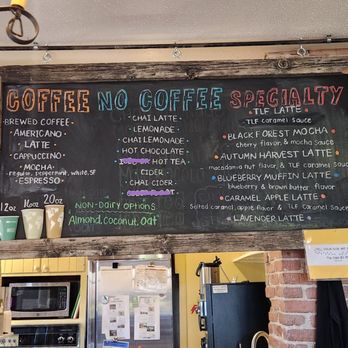 COFFEE
BREWED COFFEE
AMERICANO
LATTE
CAPPUCCINO
MOCHA
regular, peppermint, white, SF
ESPRESSO
12oz 16oz 20oz
NO COFFEE
CHAI LATTE
LEMONADE
CHAI LEMONADE
HOT CHOCOLATE
HOT TEA
CIDER
CHAI CIDER
NON-DAIRY OPTIONS
Almond, coconut, oat
SPECIALTY
TLF LATTE
TLF caramel sauce
BLACK FOREST MOCHA
cherry flavor, & mocha sauce
AUTUMN HARVEST LATTE
macadamia nut flavor, & TLF caramel sauce
BLUEBERRY MUFFIN LATTE
blueberry & brown butter flavor
CARAMEL APPLE LATTE
Salted caramel, apple flavor & TLF caramel sauce
LAVENDER LATTE